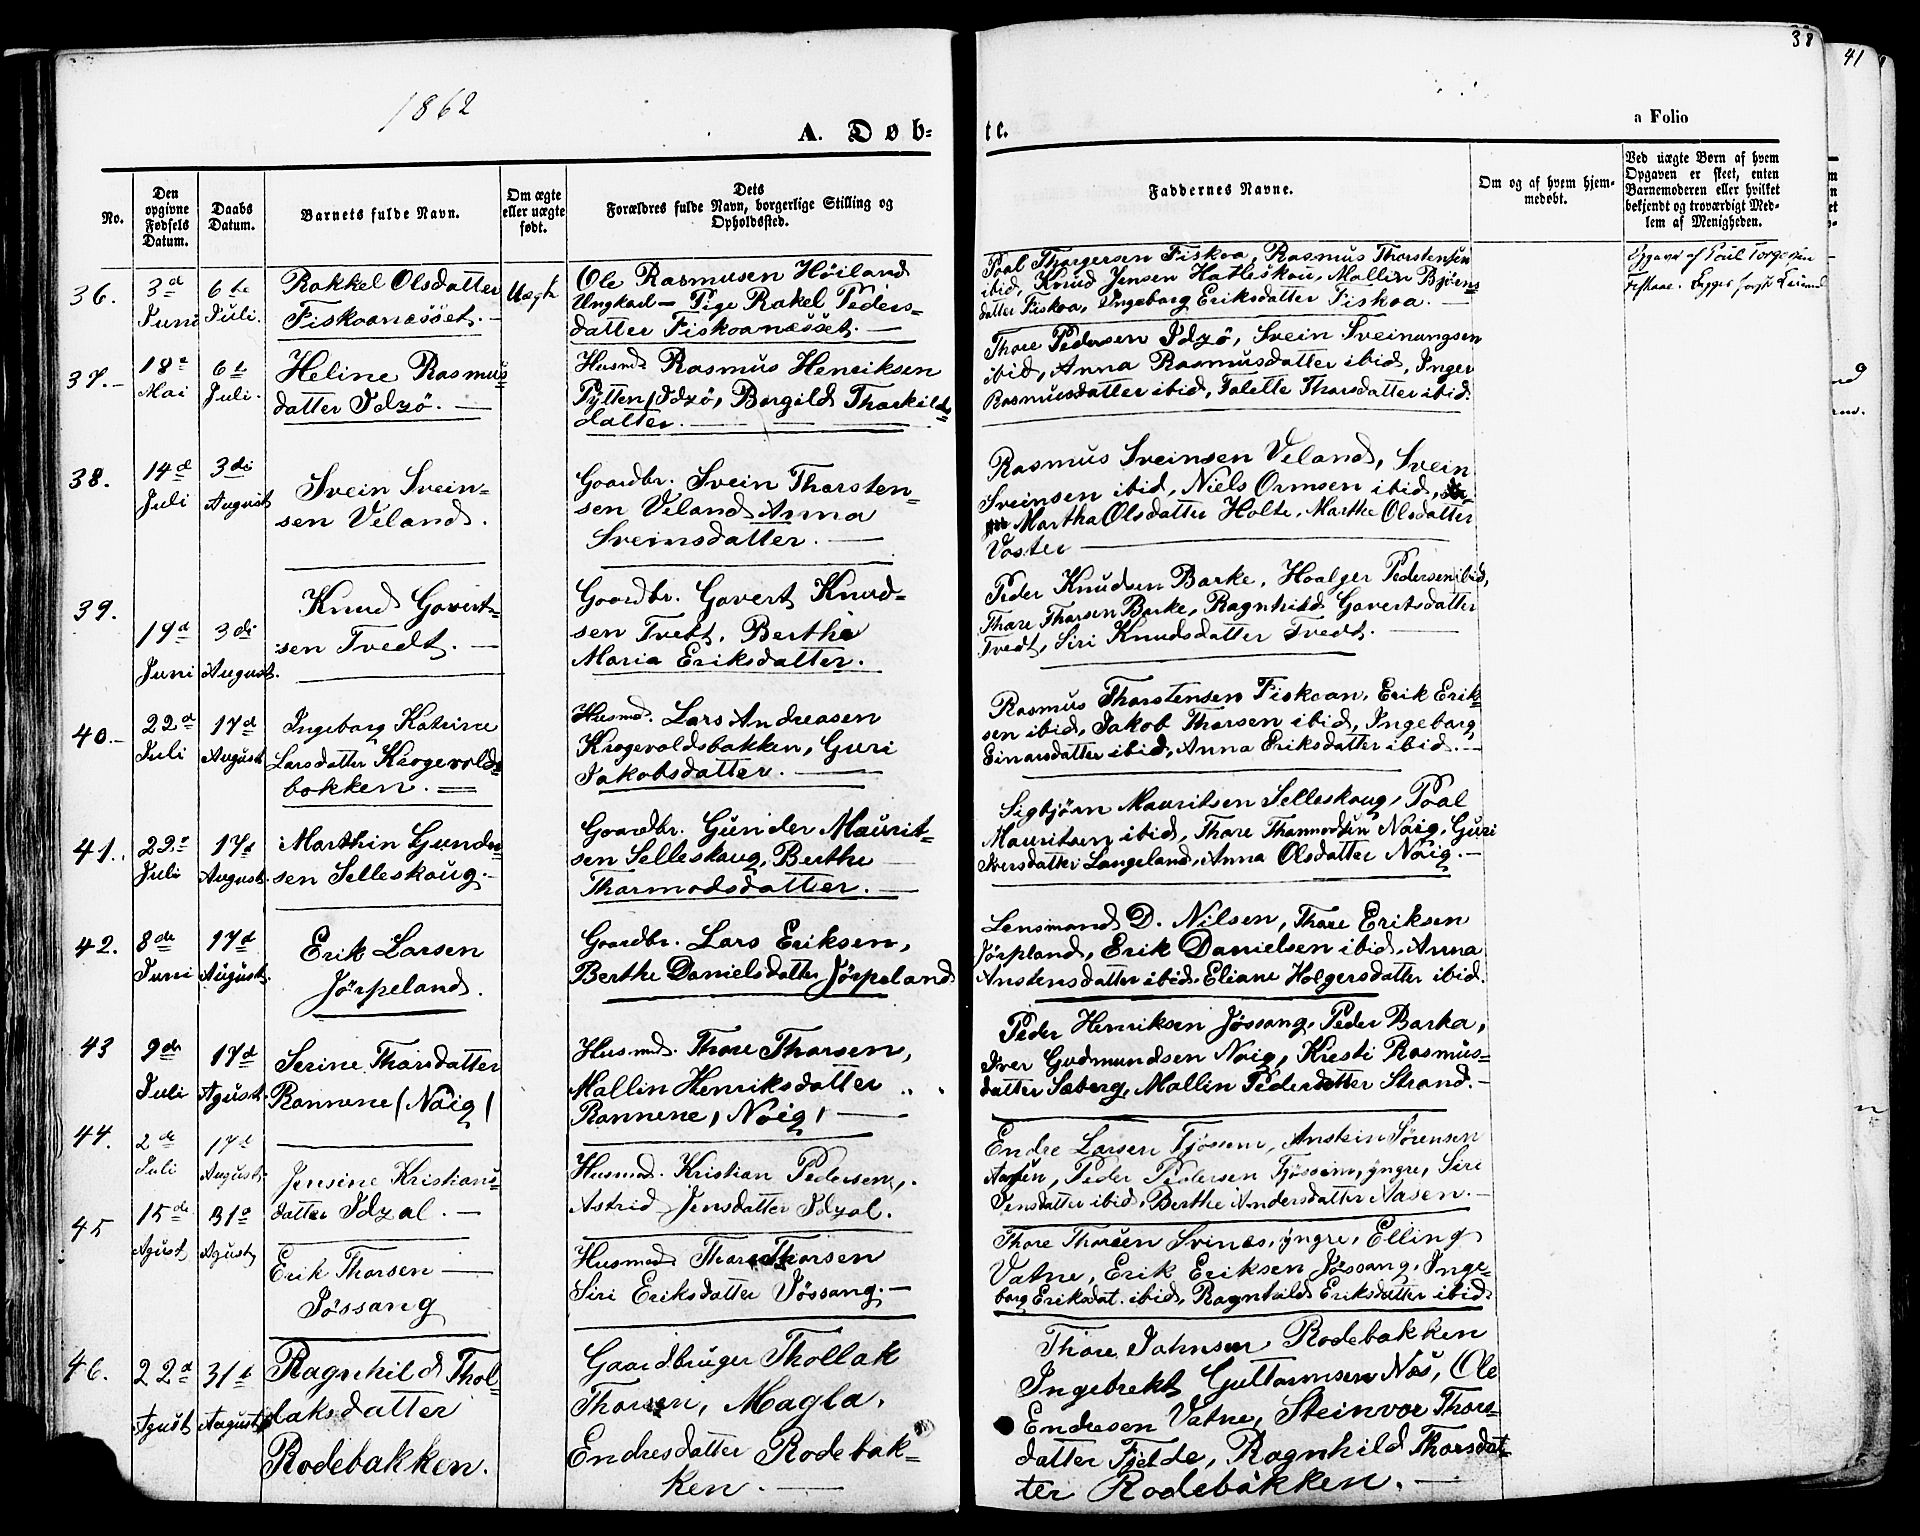 1862
38
41
A. Døb-
te.
a Folio
No.
Den opgivne Fødsels Datum.
Daabs Datum.
Barnets fulde Navn.
Om ægte eller uægte født.
Dets
Forældres fulde Navn, borgerlige Stilling og Opholdssted.
Faddernes Navne.
Om og af hvem hjem-
medøbt.
Ved uægte Børn af hvem
Opgaven er skeet, enten
Barnemoderen eller hvilket
bekjendt og troværdigt Med-
lem af Menigheden.
36.
3d Juni
6te Juli.
Rakkel Olsdatter
Fiskoanæsset.
Uægte
Ole Rasmusen Höiland
Ungkarl — Pige Rakel Peders-
datter Fiskoanæsset. —
Poal Thorgersen Fiskoa, Rasmus Thorstensen
ibid, Knud Jensen Hatleskou, Mallin Bjørns-
datter Fiskoa, Ingeborg Eriksdatter Fiskoa. —
Opgave af
37.
18de Mai
6te Juli.
Heline Rasmus-
datter Idzö. —
Husmd Rasmus Henriksen
Pytten, Idzö, Borgild Thorkilds-
datter. —
Thore Pedersen Idzö, Svein Sveinungsen
ibid, Anna Rasmusdatter ibid, Inger
Rasmusdatter ibid, Talette Thorsdatter ibid.
38.
14d Juli
3di August
Svein Svein-
sen Veland.
Gaardbr. Svein Thorsten-
sen Veland, Anna
Sveinsdatter. —
Rasmus Sveinsen Veland, Svein
Sveinsen ibid, Niels Ormsen ibid,
Martha Olsdatter Holte, Marthe Olsdatter
Voster —
39.
19d Juni
3di August.
Knud Govert-
sen Tvedt. —
Gaardbr. Govert Knud-
sen Tvett, Berthe
Maria Eriksdatter.
Peder Knudsen Barke, Hoalger Pedersen ibid,
Thore Thorsen Barke, Ragnhild Govertsdatter
Tvedt, Siri Knudsdatter Tvedt. —
40.
22d Juli
17d August
Ingeborg Katrine
Larsdatter Krogevolds-
bakken. =
Husmd. Lars Andreasen
Krogevoldsbakken, Guri
Jakobsdatter. —
Rasmus Thorstensen Fiskoan, Erik Erik-
sen ibid, Jakob Thorsen ibid, Ingeborg
Einarsdatter ibid, Anna Eriksdatter ibid. —
41.
22d Juli
17d August.
Marthin Gunder-
sen Selleskoug. —
Gaardbr. Gunder Maurit-
sen Selleskoug, Berthe —
Thormodsdatter. —
Sigbjörn Mauritsen Selleskoug, Poal
Mauritsen ibid, Thore Thormodsen Noig, Guri
Iversdatter Langeland, Anna Olsdatter Noig. —
42.
8de Juni
17d August.
Erik Larsen
Jörpeland.
Gaardbr. Lars Eriksen,
Berthe Danielsdatter Jörpeland
Lensmand D. Nilsen, Thore Eriksen
Jörpland, Erik Danielsen ibid, Anna
Anstensdatter ibid, Eliane Holgersdatter ibid.
43
9de Juli
17d Agust.
Serine Thorsdatter
Rannene (Noig)
Husmd. Thore Thorsen,
Mallin Henriksdatter
Rannene, (Noig) —
Peder Henriksen Jössang, Peder Barka,
Iver Gudmundsen Noig, Kresti Rasmus-
datter Soberg, Mallin Pedersdatter Strand. —
44.
2de Juli
17d August.
Jensine Kristians-
datter Idzal. —
Husmd. Kristian Pedersen,
Astrid Jensdatter Idzal.
Endre Larsen Tjössem, Anstein Sörensen
Aasen, Peder Pedersen Tjössem, yngre, Siri
Jensdatter ibid, Berthe Andersdatter Aasen. —
45
15de Agust
31d Agust
Erik Thorsen —
Jössang
Husmd Thore Thorsen
Siri Eriksdatter Jössang. —
Thore Thorsen Svines, yngre, Elling
Vatne, Erik Eriksen Jössang, Inge-
borg Eriksdat. ibid, Ragnhild Eriksdatter ibid.
46.
22d Agust
31d August
Ragnhild Thol-
laksdatter
Rodebakken.
Gaardbruger Thollak
Thorsen, Magla
Endresdatter Rodebak-
ken. —
Thore Johnsen Rodebakken
Ingebrekt Guttormsen Nös, Ole
Endresen Vatne, Steinvor Thors-
datter Fjelde, Ragnhild Thorsdat-
ter Rodebakken. —